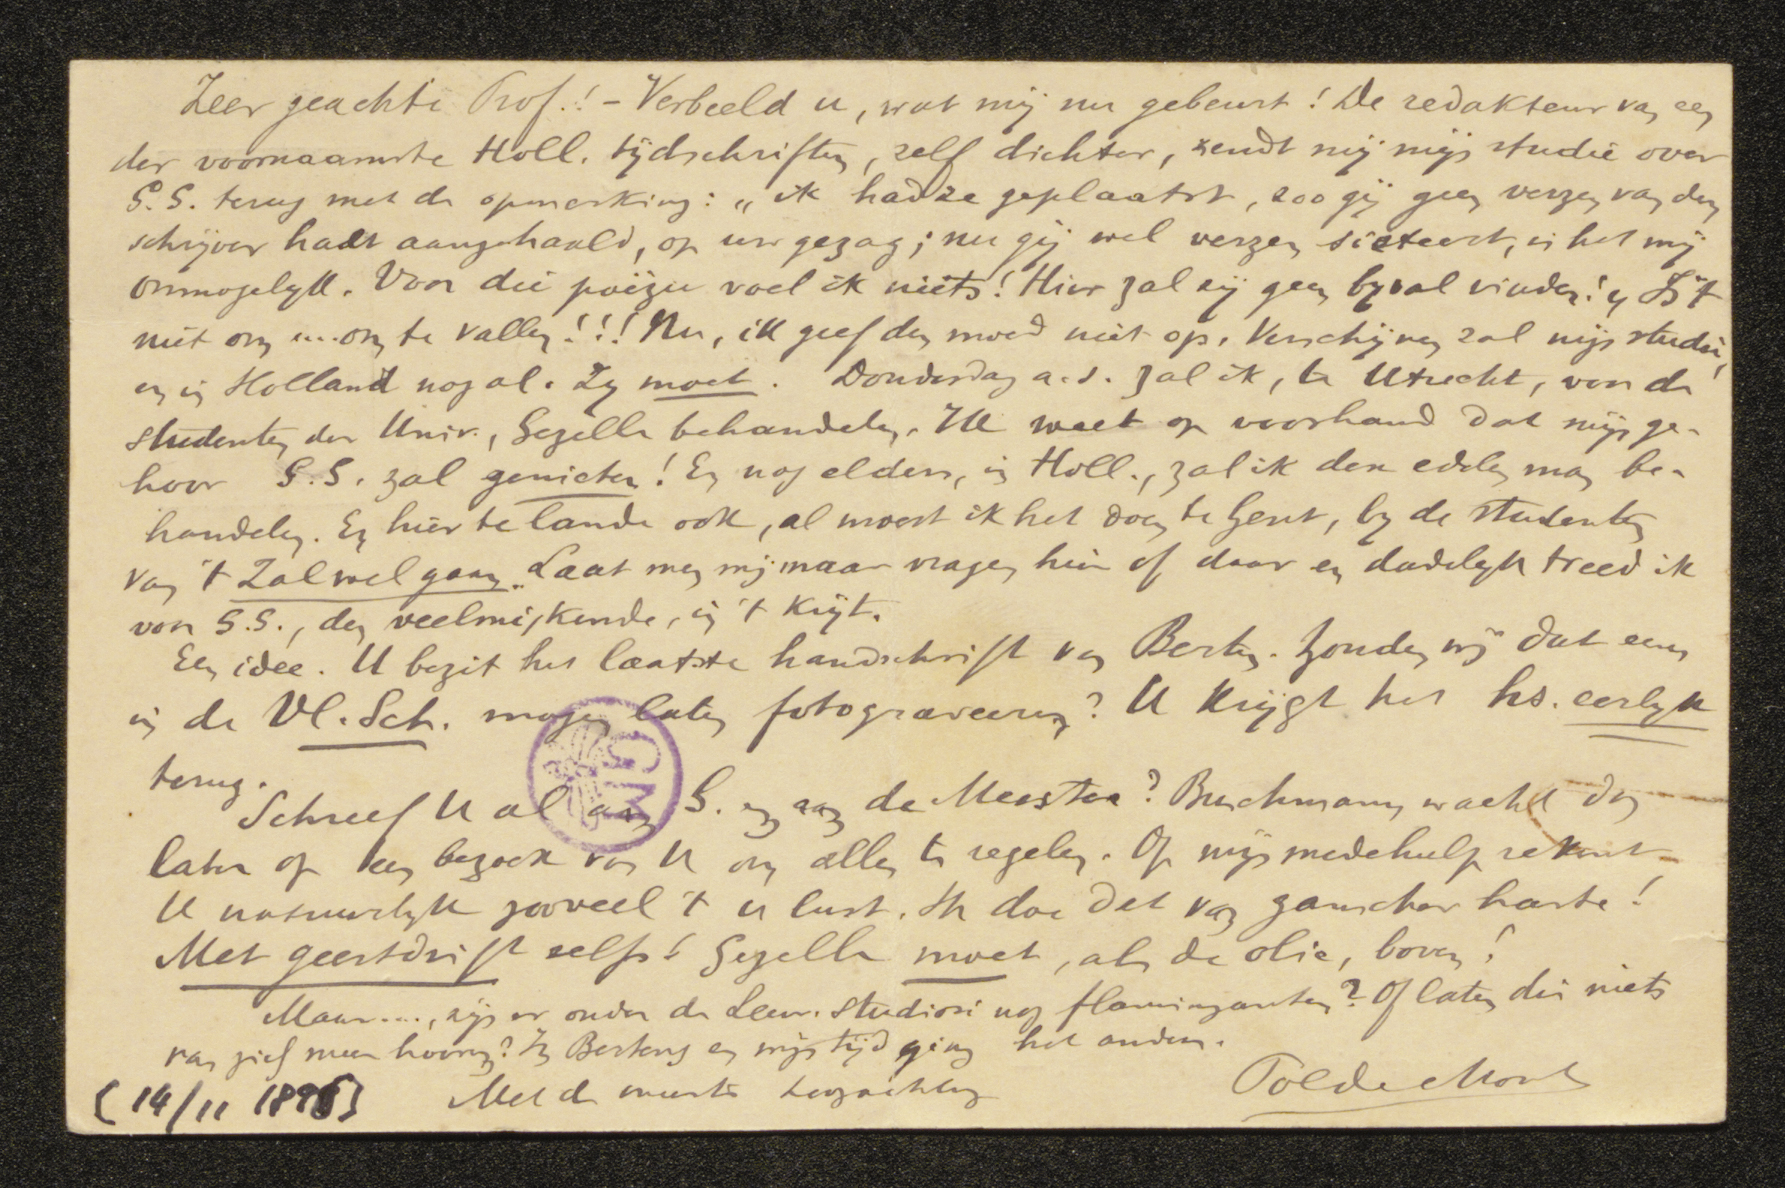 Zeer geachte Prof.! – Verbeeld u, wat mij nu gebeurt! De redakteur van een
der voornaamste Holl. tijdschriften, zelf dichter, zendt mij mijn studie over
G.G. terug met de opmerking: „ik had ze geplaatst, zoo gij geen verzen van den
schrijver hadt aangehaald, op uw gezag; nu gij wel verzen siteert, is het mij
onmogelyk. Voor die poëzie voel ik niets! Hier zal zij geen byval vinden!„ Is 't
niet om .... om te vallen!!! Nu, ik geef den moed niet op. Verschijnen zal mijn studie,
en in Holland nog al. Zy moet. Donderdag a.s. zal ik, te Utrecht, voor de
studenten der Univ., Gezelle behandelen. Ik weet op voorhand dat mijn ge-
hoor G.G. zal genieten! En nog elders, in Holl., zal ik den edelen man be-
handelen. En hier te lande ook, al moest ik het doen te Gent, by de studenten
van 't Zal wel gaan. Laat men mij maar vragen hier of daar en dadelyk treed ik
voor G.G., den veelmiskende, in 't krijt.
Een idee. U bezit het laatste handschrift van Berten. Zouden wij dat eens
in de Vl. Sch. mogen laten fotograveeren? U krijgt het hs. eerlyk
terug.
Schreef U al aan G. en aan de Meester? Buschmann wacht dan
later op een bezoek van U om alles te regelen. Op mijn medehulp rekent
U natuurlyk zooveel 't u lust. Ik doe dat van ganscher harte!
Met geestdrift zelfs! Gezelle moet, als de olie, boven!
Maar...., zijn er onder de Leuv. studiosi nog flaminganten? Of laten die niets
van zich meer hooren? In Bertens en mijn tijd ging het anders.
(14/11 1896) Met de meeste hoogachting Pol de Mont
GM